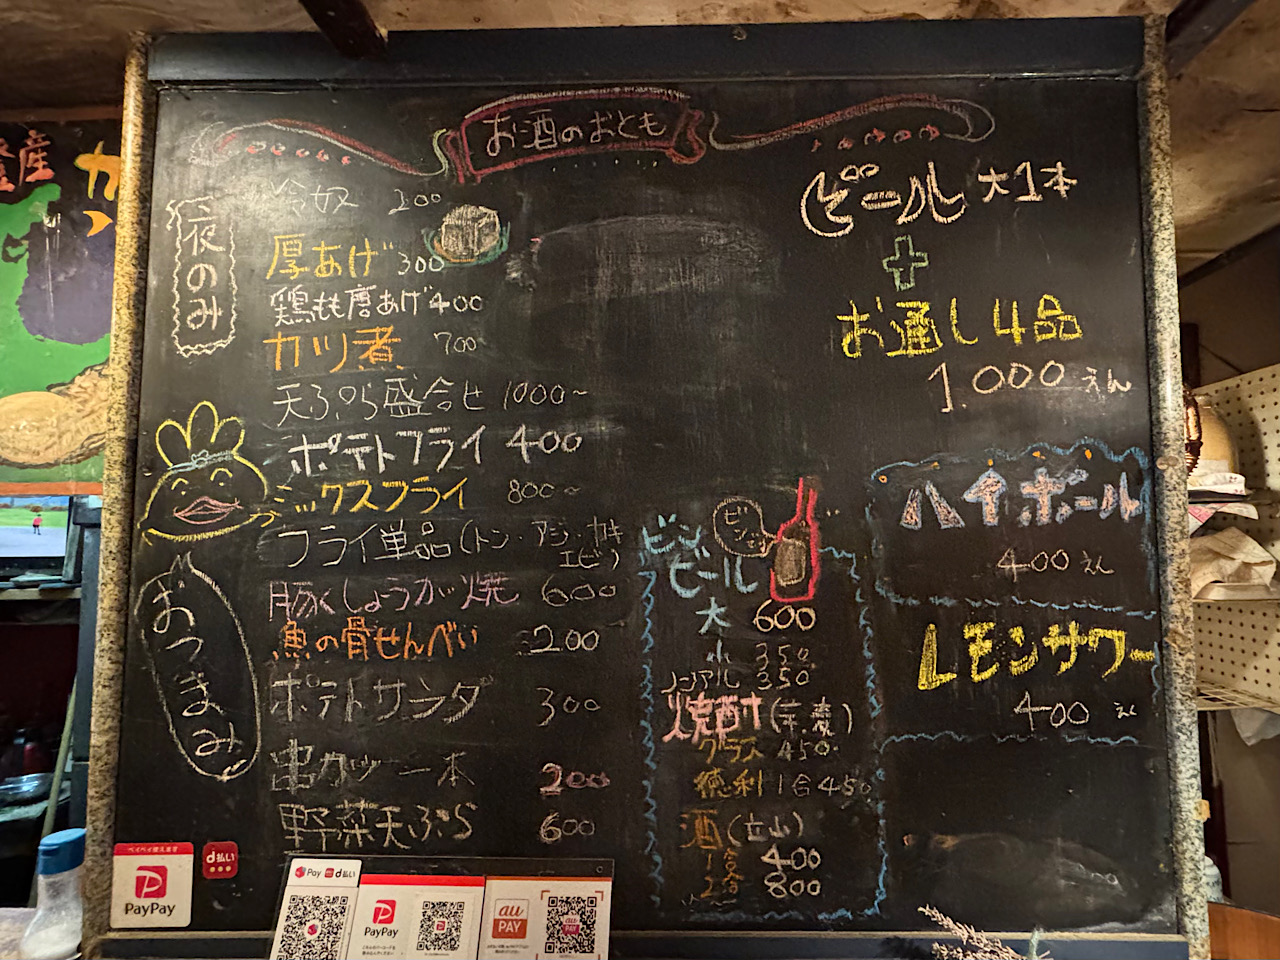 お酒のおとも
夜のみ
冷奴 200
厚あげ 300
鶏もも唐あげ 400
カツ煮 700
天ぷら盛合せ 1000~
ポテトフライ 400
ミックスフライ 800~
フライ単品(トン・アジ・カキ
エビ)
豚しょうが焼 600
魚の骨せんべい 200
ポテトサラダ 300
串カツ一本 200
野菜天ぷら 600
おつまみ
ビール 大1本
+
お通し4品
1.000えん
ハイボール
400えん
レモンサワー
400えん
ビン
ビール
大 600
小 350
ノンアル 350
焼酎(芋.麦)
グラス 450
徳利1合450
酒(立山)
1合 400
2合 800
産
カ
ペイペイ使えます
PayPay
d払い
Pay
d払い
PayPay
au
PAY